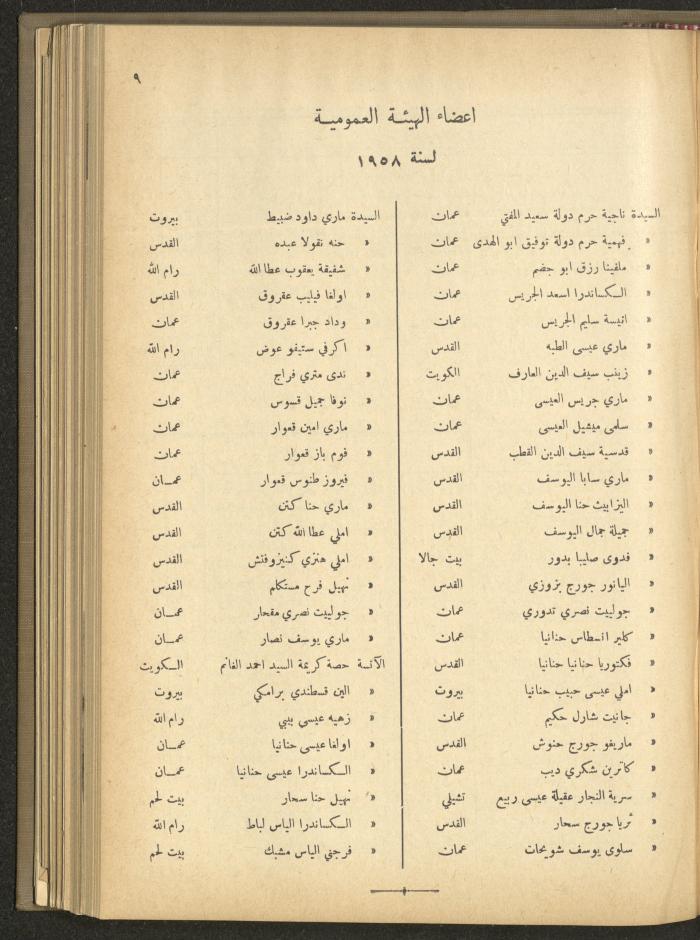 ٩
اعضاء الهيئة العمومية
لسنة ١٩٥٨
السيدة ناجية حرم دولة سعيد المفتي عمان
« فهمية حرم دولة توفيق ابو الهدى عمان
« ملفينا رزق ابو جضم عمان
« الكساندرا اسعد الجريس عمان
« انيسة سليم الجريس عمان
« ماري عيسى الطبه القدس
« زينب سيف الدين العارف الكويت
« ماري جريس العيسى عمان
« سلمى ميشيل العيسى عمان
« قدسية سيف الدين القطب القدس
« ماري سابا اليوسف القدس
« اليزابيث حنا اليوسف القدس
« جميلة جمال اليوسف القدس
« فدوى صليبا بدور بيت جالا
« اليانور جورج بزوزي القدس
« جولييت نصري تدوري عمان
« كلير انسطاس حنانيا عمان
« فكتوريا حنانيا حنانيا القدس
« املي عيسى حبيب حنانيا بيروت
« جانيت شارل حكيم عمان
« ماريغو جورج حنوش القدس
« كاترين شكري ديب عمان
« سرية النجار عقيلة عيسى ربيع تشيلي
« ثريا جورج سحار القدس
« سلوى يوسف شويحات عمان
السيدة ماري داود ضبيط بيروت
« حنه نقولا عبده القدس
« شفيقة يعقوب عطا الله رام الله
« اولغا فيليب عقروق القدس
« وداد جبرا عقروق عمان
« اكرفي ستيفو عوض رام الله
« ندى متري فراج عمان
« نوفا جميل قسوس عمان
« ماري امين قعوار عمان
« فوم باز قعوار عمان
« فيروز طنوس قعوار عمان
« ماري حنا كتن القدس
« املي عطا الله كتن القدس
« املي هنري كنيزوفتش القدس
« نهيل فرح مستكلم القدس
« جولييت نصري مقحار عمان
« ماري يوسف نصار عمان
الآنسة حصة كريمة السيد احمد الغانم الكويت
« الين قسطندي برامكي بيروت
« زهيه عيسى بيبي رام الله
« اولغا عيسى حنانيا عمان
« الكساندرا عيسى حنانيا عمان
« نهيل حنا سحار بيت لحم
« الكساندرا الياس لباط رام الله
« فرجني الياس مشبك بيت لحم